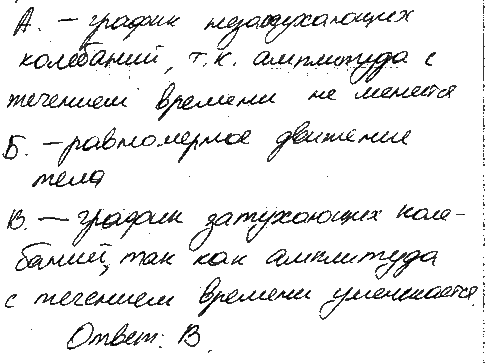 А. – график незатухающих
колебаний, т.к. амплитуда с
течением времени не меняется
Б. – равномерное движение
тела
В. – график затухающих коле-
баний, так как амплитуда
с течением времени уменьшается.
Ответ: В.